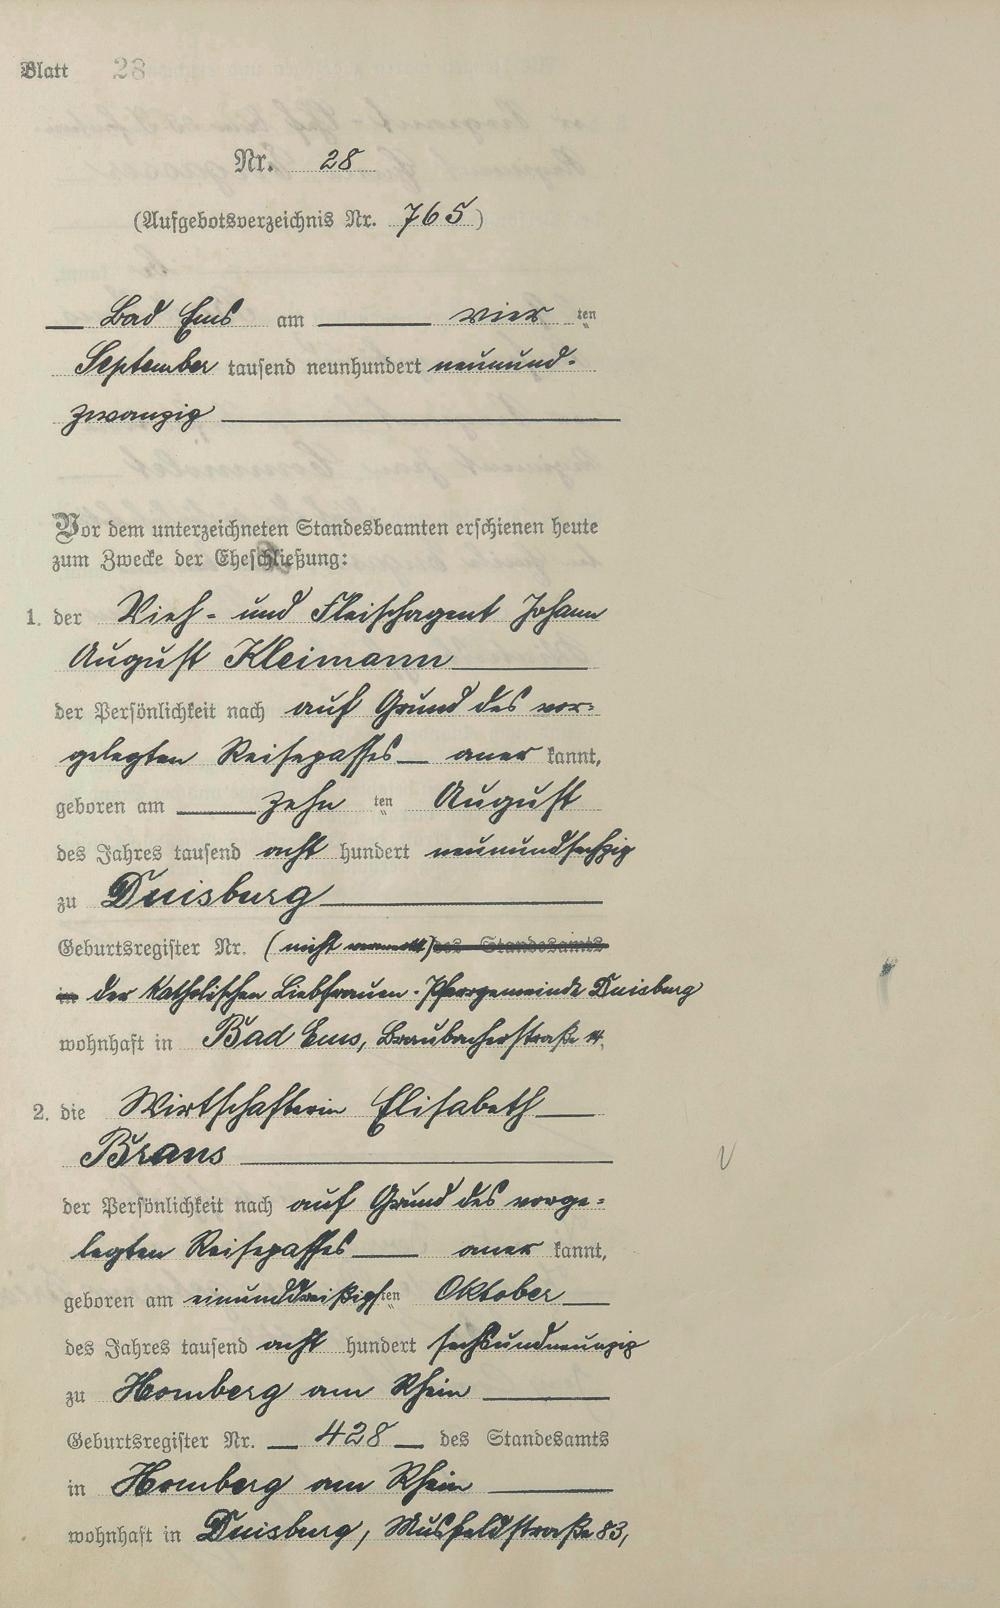 Blatt 28
Nr. 28
(Aufgebotsverzeichnis Nr. 765)
Bad Ems am vier ten
September tausend neunhundert neunund-
zwanzig
Vor dem unterzeichneten Standesbeamten erschienen heute
zum Zwecke der Eheschließung:
1. der Vieh- und Fleischagent Johann
August Kleimann
der Persönlichkeit nach auf Grund des vor-
gelegten Reisepasses aner kannt,
geboren am zehn ten August
des Jahres tausend acht hundert neunundsechzig
zu Duisburg
Geburtsregister Nr. (nicht vermerkt) des Standesamts
in der katholischen Liebfrauen-Pfarrgemeinde Duisburg
wohnhaft in Bad Ems, Braubacherstraße
2. die Wirtschafterin Elisabeth
Brans
der Persönlichkeit nach auf Grund des vorge-
legten Reisepasses aner kannt,
geboren am einunddreißigsten Oktober
des Jahres tausend acht hundert sechsundneunzig
zu Homberg am Rhein
Geburtsregister Nr. 428 des Standesamts
in Homberg am Rhein
wohnhaft in Duisburg, Musfeldstraße 83,